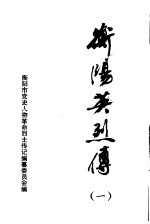 衡陽英烈傳
(一)
衡阳市党史人物革命烈士传记编纂委员会编